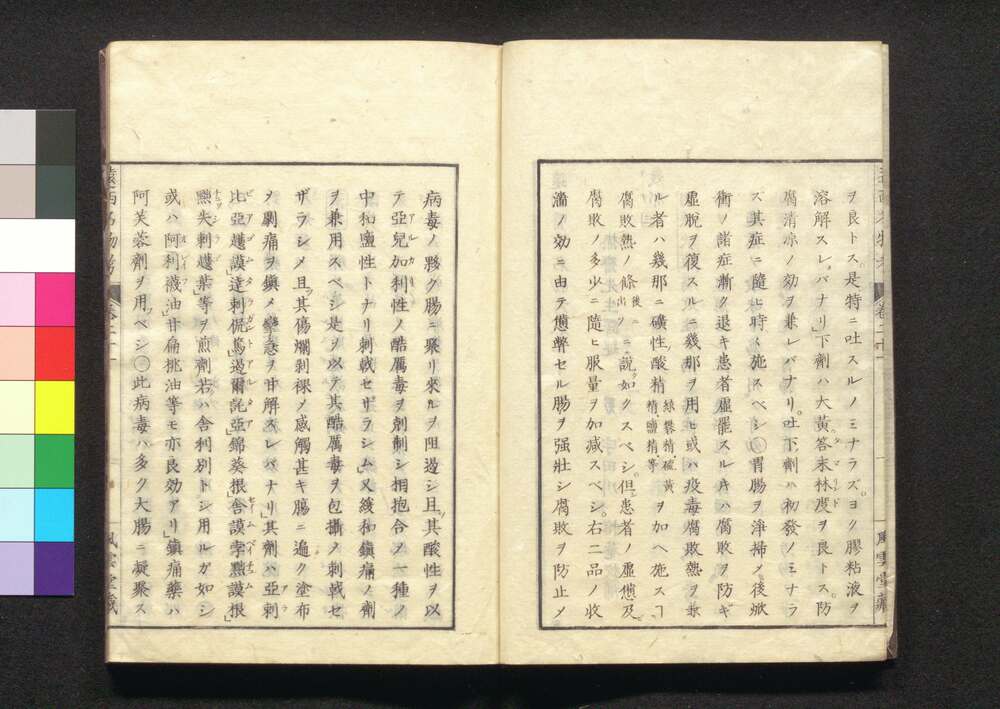 ヲ良トス是特ニ吐スルノミナラズヨク膠粘液ヲ
溶解スレバナリ下劑ハ大黄荅末林度ヲ良トス防
腐清凉ノ効ヲ兼レバナリ吐下劑ハ初發ノミナラ
ズ其症ニ隨ヒ時々施スベシ○胃腸ヲ淨掃シ後焮
衝ノ諸症漸ク退キ患者虚罷スル片ハ腐敗ヲ防ギ
虚脱ヲ復スルニ幾那ヲ用ヒ或ハ疫毒腐敗熱ヲ兼
ル者ハ幾那ニ礦性酸精緑礬精硫黄精鹽精等ヲ加ヘ施スヿ
腐敗熱ノ條後ニ出ヅニ説如クスベシ但患者ノ虚憊及
腐敗ノ多少ニ隨ヒ服量ヲ加減スベシ右二品ノ收
濇ノ効ニ由テ憊弊セル腸ヲ强壯シ腐敗ヲ防止メ
風雲堂藏
病毒ノ夥ク腸ニ聚リ來ルヲ阻遏シ且其酸性ヲ以
テ亞兒加利性ノ酷厲毒ヲ剋制シ相抱合メ一種ノ
中和鹽性トナリ刺戟セザラシム又緩和鎭痛ノ劑
ヲ兼用スベシ是ヲ以テ其酷厲毒ヲ包攝メ刺戟セ
ザラシメ且其傷爛剥裸メ感觸甚キ膓ニ遍ク塗布
ヲ劇痛ヲ鎭メ攣急ヲ甘解スレバナリ其劑ハ亞刺
比亞護謨達刺侃篤過爾託亞錦葵根舎謨孛㸃謨根
㸃失刺護葉等ヲ煎劑若ハ舎利別トシ用ルガ如シ
或ハ阿利襪油甘扁桃油等モ亦良効アリ鎭痛藥ハ
阿芙蓉劑ヲ用ベシ○此病毒ハ多ク大腸ニ凝聚ス
遠西名物考
卷二十
風雲堂藏